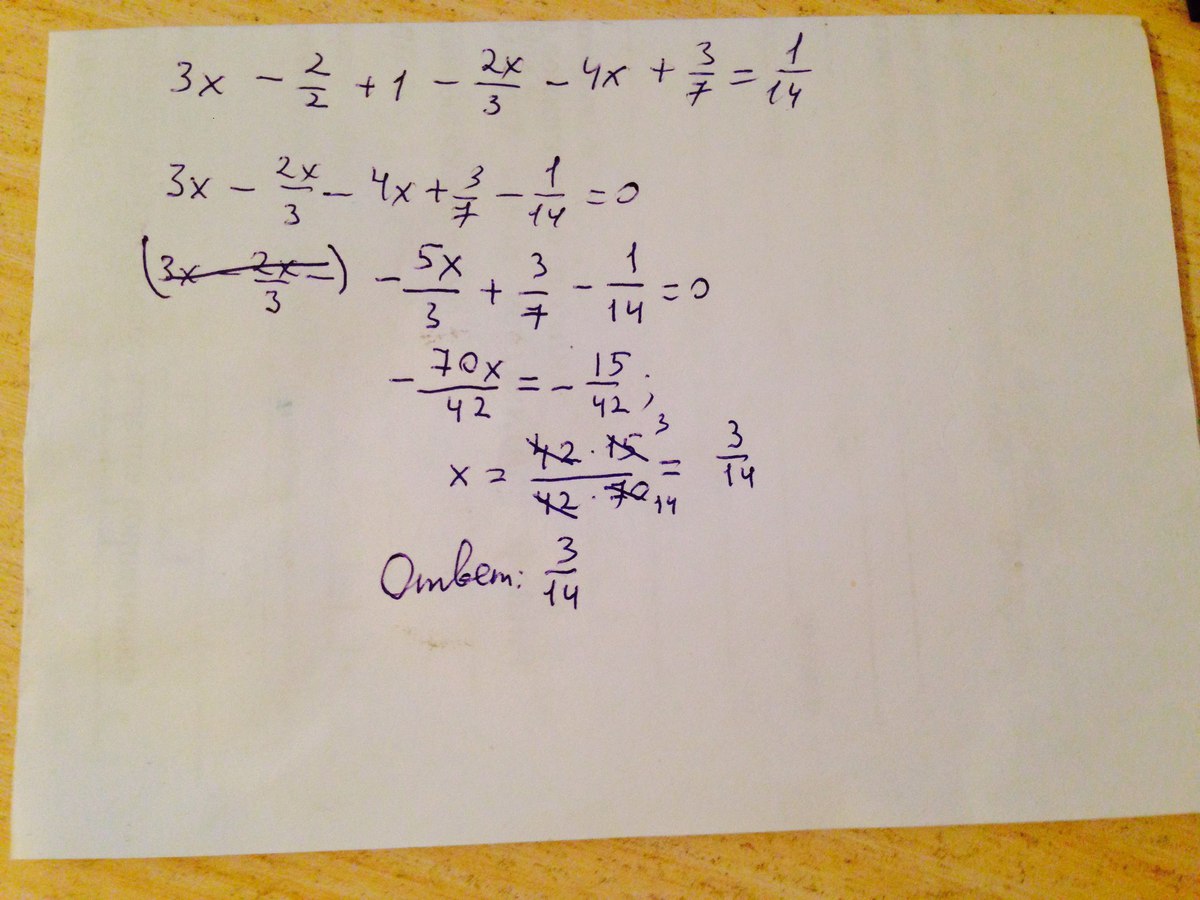 3x - 2/2 + 1 - 2x/3 - 4x + 3/7 = 1/14
3x - 2x/3 - 4x + 3/7 - 1/14 = 0
(3x - 2x/3 -) - 5x/3 + 3/7 - 1/14 = 0
- 70x/42 = - 15/42;
x = 42 · 15 3/42 · 70 14 = 3/14
Ответ: 3/14